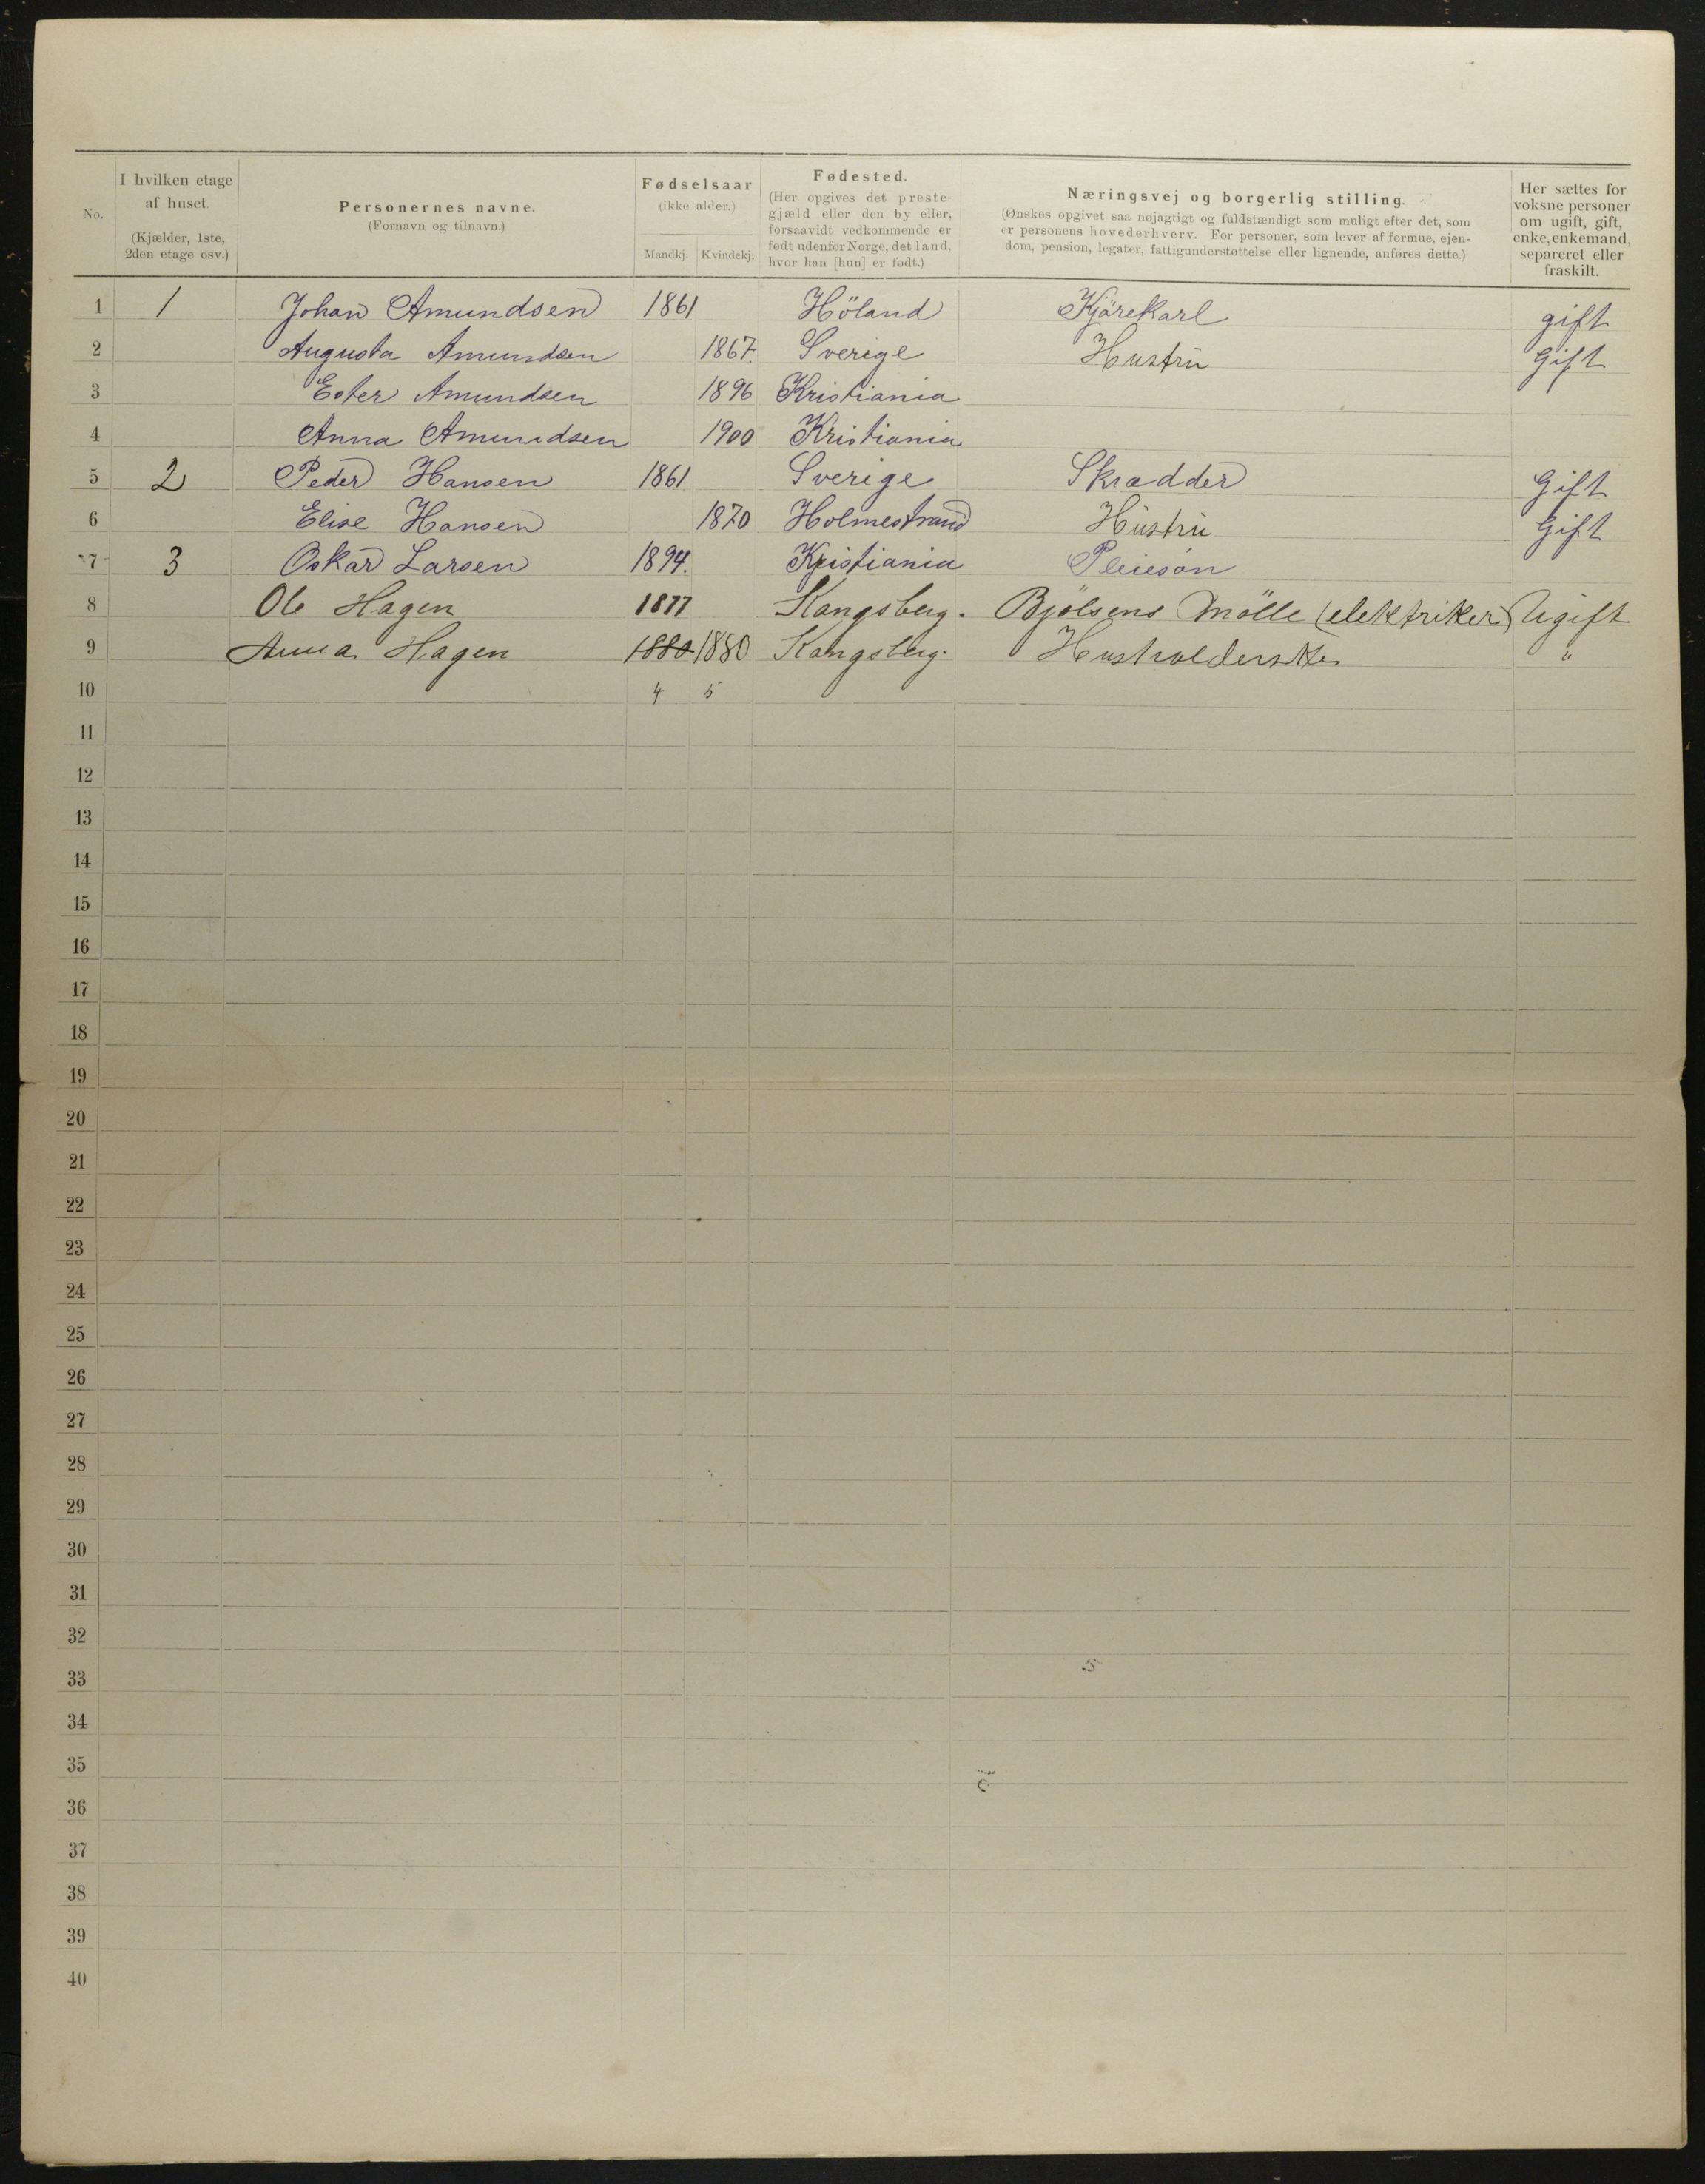 No. | I hvilken etage af huset. (Kjælder, 1ste, 2den etage osv.) | Personernes navne. (Fornavn og tilnavn.) | Fødselsaar (ikke alder.) Mandkj. | Kvindekj. | Fødested. (Her opgives det prestegjæld eller den by eller, forsaavidt vedkommende er født udenfor Norge, det land, hvor han [hun] er født.) | Næringsvej og borgerlig stilling. (Ønskes opgivet saa nøjagtigt og fuldstændigt som muligt efter det, som er personens hovederhverv. For personer, som lever af formue, ejendom, pension, legater, fattigunderstøttelse eller lignende, anføres dette.) | Her sættes for voksne personer om ugift, gift, enke, enkemand, separeret eller fraskilt.
1 | 1 | Johan Amundsen | 1861 | | Höland | Kjörekarl | gift
2 | | Augusta Amundsen | | 1867. | Sverige | Hustru | Gift
3 | | Ester Amundsen | | 1896 | Kristiania
4 | | Anna Amundsen | | 1900 | Kristiania
5 | 2 | Peder Hansen | 1861 | | Sverige | Skrædder | Gift
6 | | Elise Hansen | | 1870 | Holmestrand | Hustru | Gift
7 | 3 | Oskar Larsen | 1894. | | Kristiania | Pleiesøn
8 | | Ole Hagen | 1877 | | Kongsberg. | Bjölsens Mölle (elektriker) | Ugift
9 | | Anna Hagen | 1880 | 1880 | Kongsberg. | Husholderske | "
10 | | | 4 | 5
11
12
13
14
15
16
17
18
19
20
21
22
23
24
25
26
27
28
29
30
31
32
33
34
35
36
37
38
39
40